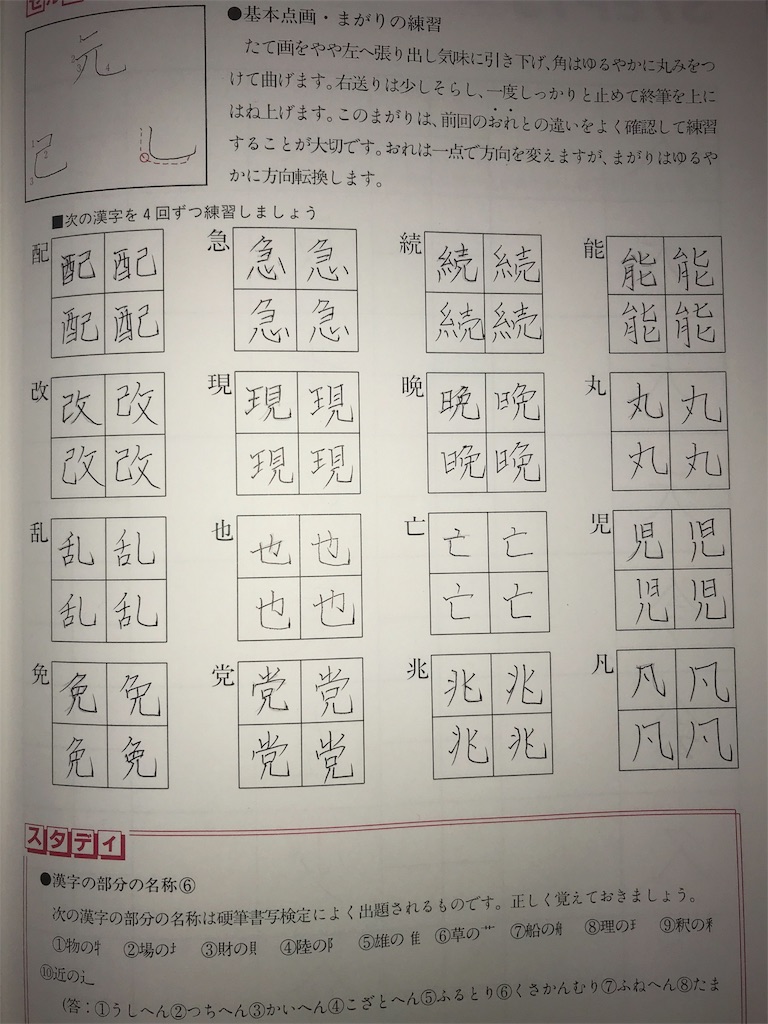 ●基本点画・まがりの練習
たて画をやや左へ張り出し気味に引き下げ、角はゆるやかに丸みをつ
けて曲げます。右送りは少しそらし、一度しっかりと止めて終筆を上に
はね上げます。このまがりは、前回のおれとの違いをよく確認して練習
することが大切です。おれは一点で方向を変えますが、まがりはゆるや
かに方向転換します。
元
1 2 3 4
己
1 2 3
乚
■次の漢字を4回ずつ練習しましょう
配 配 配 急 急 急 続 続 続 能 能 能
配 配 急 急 続 続 能 能
改 改 改 現 現 現 晩 晩 晩 丸 丸 丸
改 改 現 現 晩 晩 丸 丸
乱 乱 乱 也 也 也 亡 亡 亡 児 児 児
乱 乱 也 也 亡 亡 児 児
免 免 免 党 党 党 兆 兆 兆 凡 凡 凡
免 免 党 党 兆 兆 凡 凡
スタディ
●漢字の部分の名称⑥
次の漢字の部分の名称は硬筆書写検定によく出題されるものです。正しく覚えておきましょう。
①物の牜 ②場の土 ③財の貝 ④陸の阝 ⑤雄の隹 ⑥草の艹 ⑦船の舟 ⑧理の王 ⑨釈の釆
⑩近の辶
(答：①うしへん②つちへん③かいへん④こざとへん⑤ふるとり⑥くさかんむり⑦ふねへん⑧たま